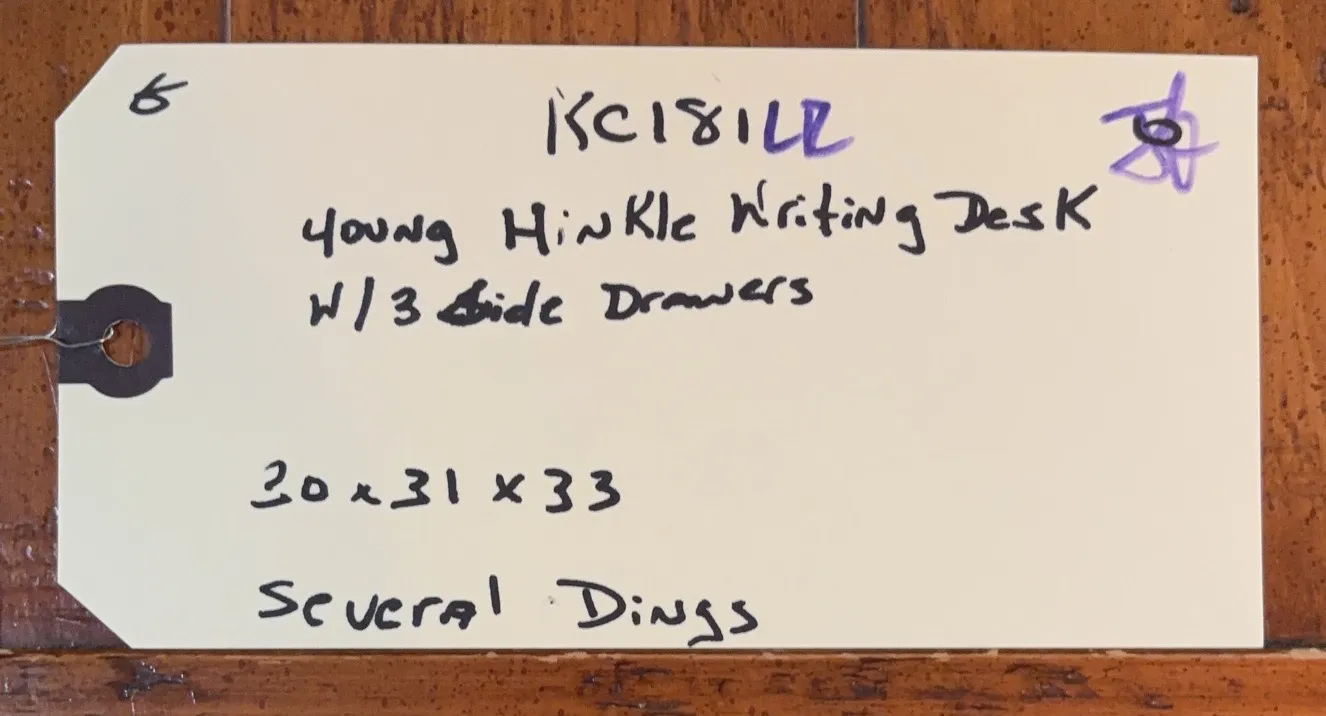 KC181LL
Young Hinkle Writing Desk
W/3 Side Drawers
x 31 x 33
Several Dings